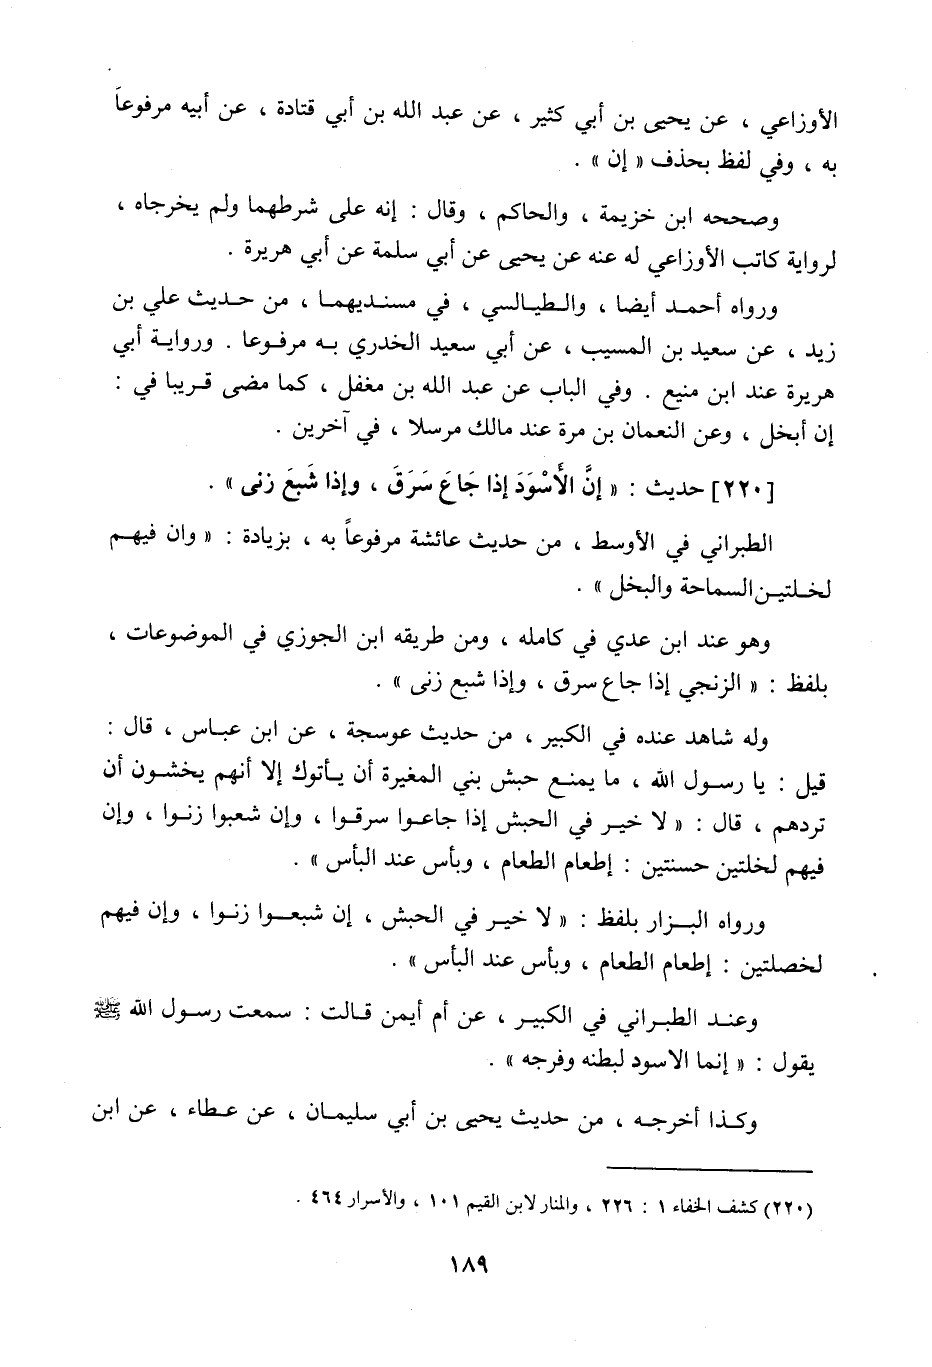 الأوزاعي ، عن يحيى بن أبي كثير ، عن عبد الله بن أبي قتادة ، عن أبيه مرفوعاً
به ، وفي لفظ بحذف « إن » .
وصححه ابن خزيمة ، والحاكم ، وقال : إنه على شرطهما ولم يخرجاه ،
لرواية كاتب الأوزاعي له عنه عن يحيى عن أبي سلمة عن أبي هريرة .
ورواه أحمد أيضا ، والطيالسي ، في مسنديهما ، من حديث علي بن
زيد ، عن سعيد بن المسيب ، عن أبي سعيد الخدري به مرفوعا . ورواية أبي
هريرة عند ابن منيع . وفي الباب عن عبد الله بن مغفل ، كما مضى قريبا في :
إن أبخل ، وعن النعمان بن مرة عند مالك مرسلا ، في آخرين .
[٢٢٠] حديث : « إنَّ الأَسْوَدَ إذا جَاعَ سَرَقَ ، وإذا شَبِعَ زنى » .
الطبراني في الأوسط ، من حديث عائشة مرفوعاً به ، بزيادة : « وان فيهم
لخلتين السماحة والبخل » .
وهو عند ابن عدي في كامله ، ومن طريقه ابن الجوزي في الموضوعات ،
بلفظ : « الزنجي إذا جاع سرق ، وإذا شبع زنى » .
وله شاهد عنده في الكبير ، من حديث عوسجة ، عن ابن عباس ، قال :
قيل : يا رسول الله ، ما يمنع حبش بني المغيرة أن يأتوك إلا أنهم يخشون أن
تردهم ، قال : « لا خير في الحبش إذا جاعوا سرقوا ، وإن شعبوا زنوا ، وإن
فيهم لخلتين حسنتين : إطعام الطعام ، وبأس عند البأس » .
ورواه البزار بلفظ : « لا خير في الحبش ، إن شبعوا زنوا ، وإن فيهم
لخصلتين : إطعام الطعام ، وبأس عند البأس » .
وعند الطبراني في الكبير ، عن أم أيمن قالت : سمعت رسول الله ﷺ
يقول : « إنما الاسود لبطنه وفرجه » .
وكذا أخرجه ، من حديث يحيى بن أبي سليمان ، عن عطاء ، عن ابن
(٢٢٠) كشف الخفاء ١ : ٢٢٦ ، والمنار لابن القيم ١٠١ ، والأسرار ٤٦٤ .
١٨٩